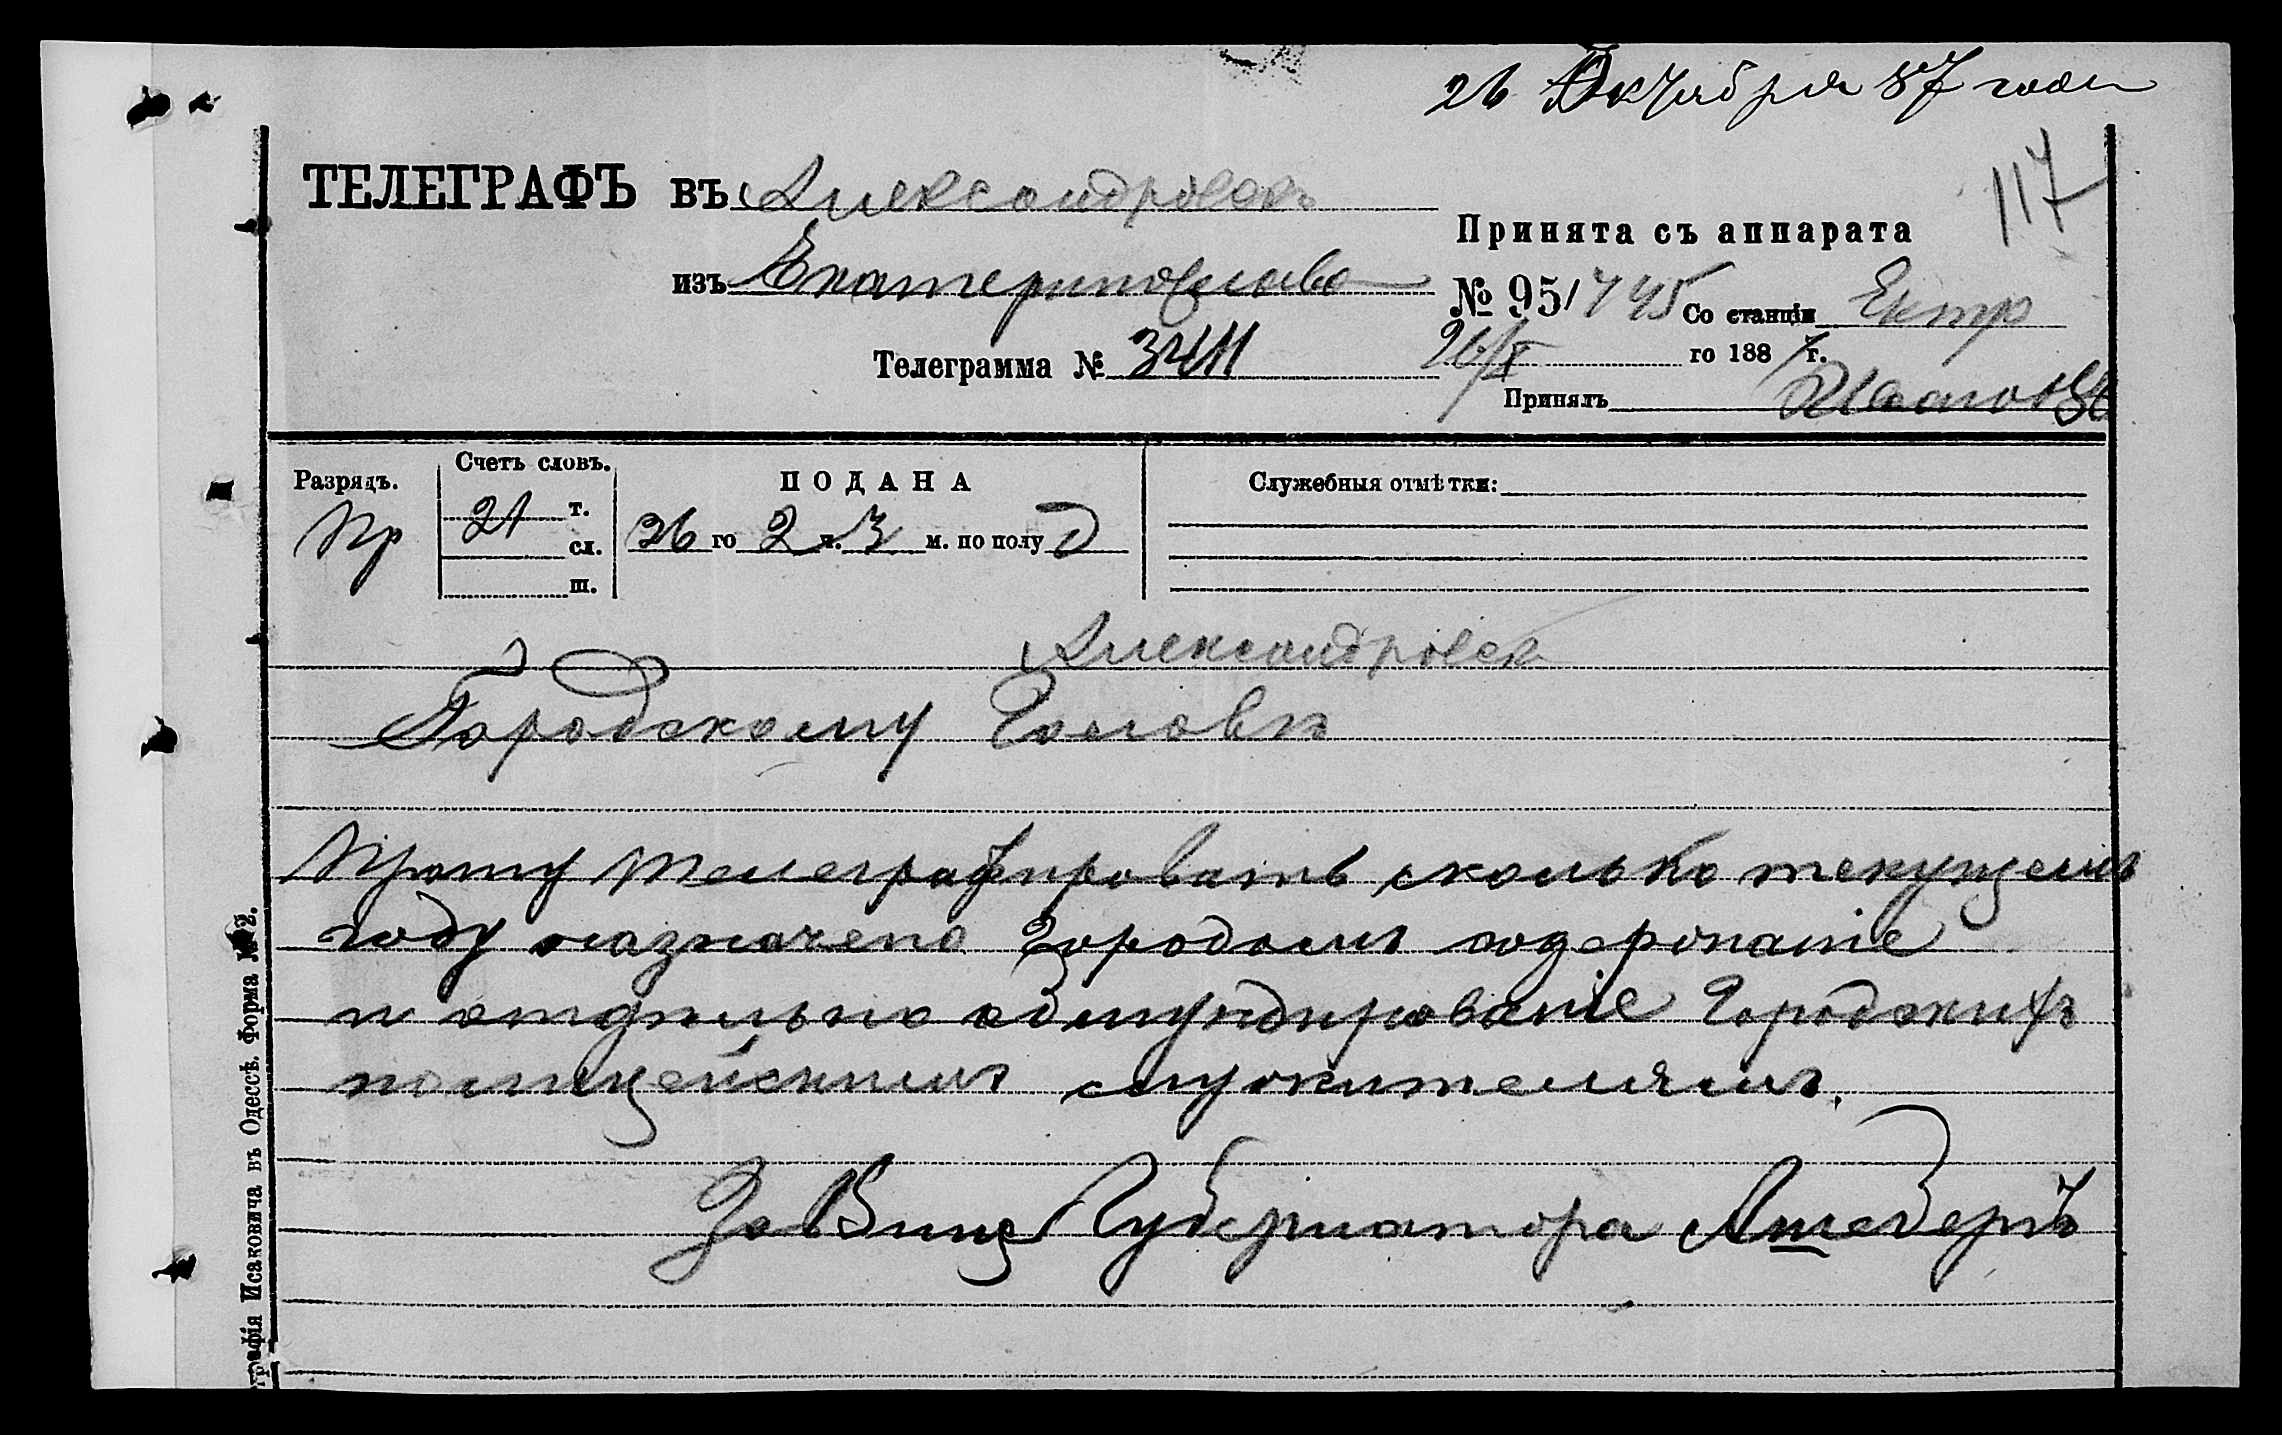 26 Октября 87 года
117
ТЕЛЕГРАФЪ въ Александровскъ
Принята съ аппарата
изъ Екатеринослава
№ 95/445 Со станціи Ектр
Телеграмма № 3411
26/X го 1887 г.
Принялъ
Разрядъ. Счетъ словъ. ПОДАНА Служебныя отмѣтки:
Пр 21 т. сл. ш. 26 го 2 ч. 3 м. по полу д
Александровск
Городскому Головѣ
Прошу телеграфировать сколько текущемъ
году назначено Городомъ содержаніе
и отдѣльно обмундированіе Городскихъ
полицейскимъ служителямъ.
За Вице Губернатора
графія Исаковича въ Одессѣ. Форма № 2.